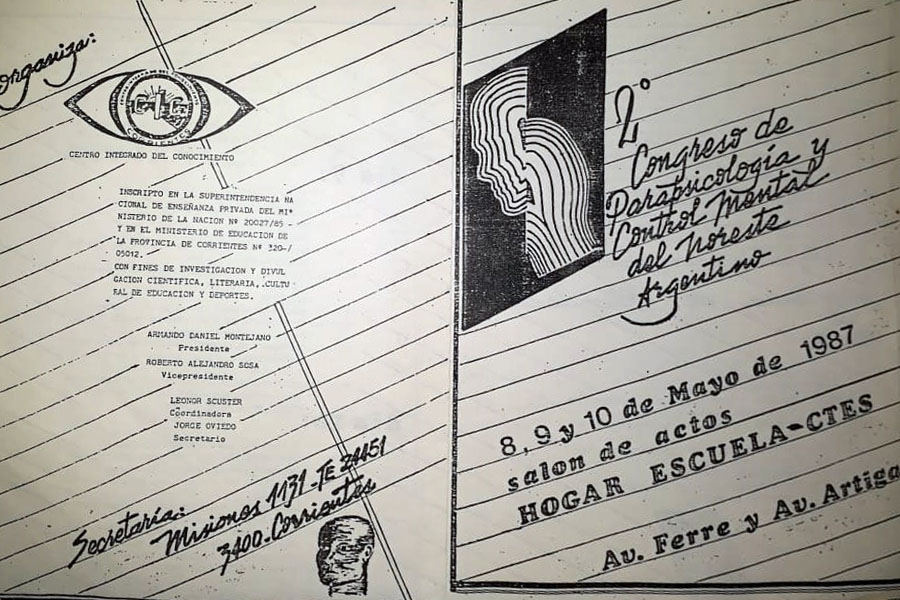 organiza:
CORRIENTES
CENTRO INTEGRADO DEL CONOCIMIENTO
INSCRIPTO EN LA SUPERINTENDENCIA NA
CIONAL DE ENSEÑANZA PRIVADA DEL MIº
NISTERIO DE LA NACION Nº 20027/85 -
Y EN EL MINISTERIO DE EDUCACION DE
LA PROVINCIA DE CORRIENTES Nº 320-/
05012.
CON FINES DE INVESTIGACION Y DIVUL
GACION CIENTIFICA, LITERARIA, CULTU
RAL DE EDUCACION Y DEPORTES.
ARMANDO DANIEL MONTEJANO
Presidente
ROBERTO ALEJANDRO SOSA
Vicepresidente
LEONOR SCUSTER
Coordinadora
JORGE OVIEDO
Secretario
Secretaría:
Misiones 1131-TE 24451
3400-Corrientes
2º
Congreso de
Parapsicología y
Control Mental
del Noreste
Argentino
8, 9 y 10 de Mayo de 1987
salon de actos
HOGAR ESCUELA-CTES
Av. Ferre y Av. Artiga